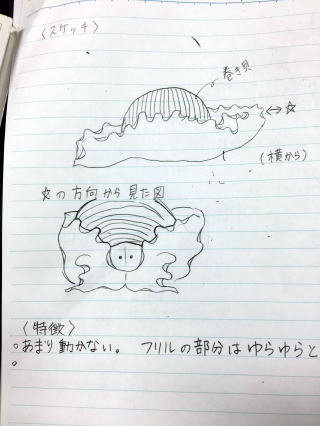 〈スケッチ〉
巻き貝
↔☆
(横から)
☆の方向から見た図
〈特徴〉
○あまり動かない。 フリルの部分はゆらゆらと
○